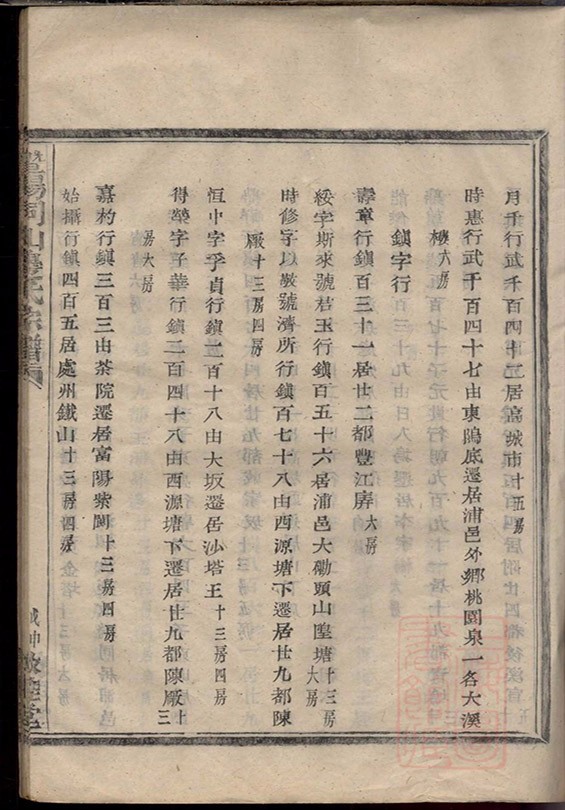 月千行武千百四十二居高城市十五房
時惠行武千百四十七由東鳴底遷居浦邑外鄉桃園泉一各大溪
樹六房
鎮字行
壽章行鎮百三十一居廿二都豐江房大房
綏字斯來號君玉行鎮百五十六居浦邑大勘頭山隍塘十三房大房
時修字以敬號濟所行鎮百七十八由西源塘下遷居廿九都陳
廠十三房四房
恒中字孚貞行鎮二百十八由大坂遷居沙塔王十三房四房
得榮字子華行鎮二百四十八由西源塘下遷居廿九都陳廠十三
房大房
嘉杓行鎮三百三由茶院遷居富陽紫閬十三房四房
始攝行鎮四百五居處州鐵山十三房四房
暨陽同山壽氏宗譜
敘經堂